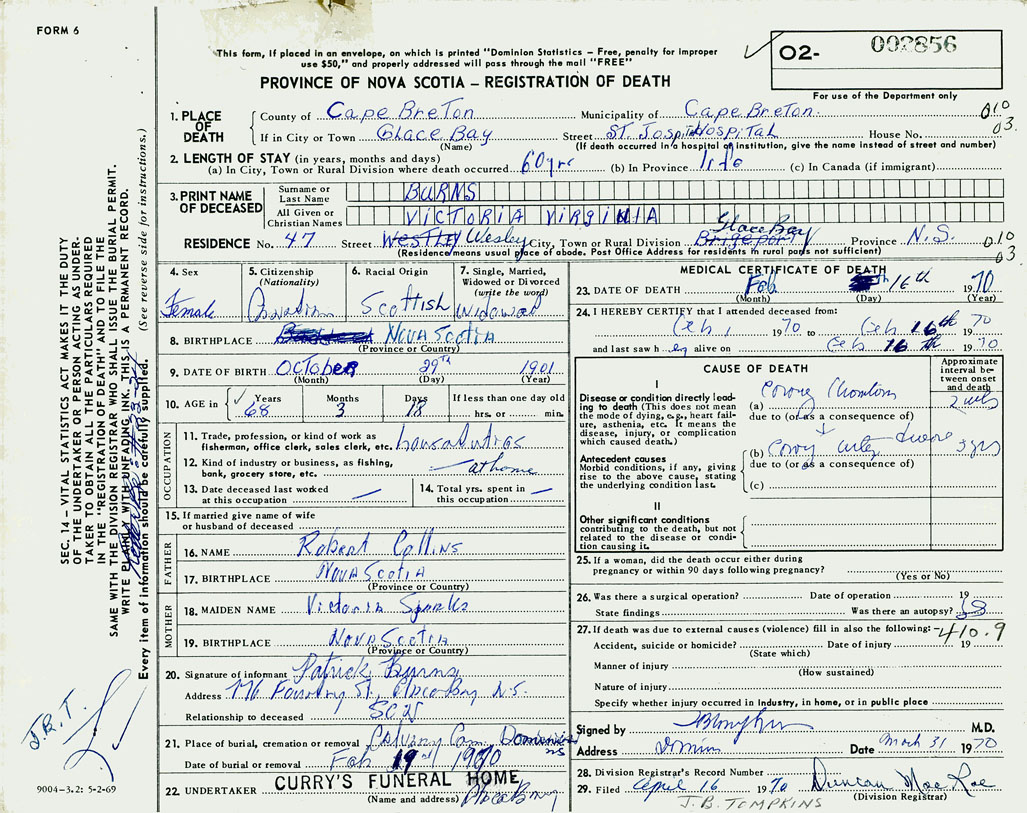 FORM 6
This form, if placed in an envelope, on which is printed "Dominion Statistics – Free, penalty for improper
use $50," and properly addressed will pass through the mail "FREE"
PROVINCE OF NOVA SCOTIA – REGISTRATION OF DEATH
02- 002856
For use of the Department only
SEC. 14 – VITAL STATISTICS ACT MAKES IT THE DUTY
OF THE UNDERTAKER OR PERSON ACTING AS UNDER-
TAKER TO OBTAIN ALL THE PARTICULARS REQUIRED
IN THE "REGISTRATION OF DEATH" AND TO FILE THE
SAME WITH THE DIVISION REGISTRAR WHO SHALL ISSUE THE BURIAL PERMIT.
WRITE PLAINLY WITH UNFADING INK. THIS IS A PERMANENT RECORD.
Every item of information should be carefully supplied. (See reverse side for instructions.)
1. PLACE OF DEATH
County of Cape Breton Municipality of Cape Breton 010
If in City or Town Glace Bay Street St. Hospital House No. 03.
(Name) (If death occurred in a hospital or institution, give the name instead of street and number)
2. LENGTH OF STAY (in years, months and days)
(a) In City, Town or Rural Division where death occurred 60 yrs (b) In Province Life (c) In Canada (if immigrant)
3. PRINT NAME OF DECEASED
Surname or Last Name BURNS
All Given or Christian Names VICTORIA VIRGINIA
RESIDENCE No. 47 Street Westley Wesley City, Town or Rural Division Brigeport Glace Bay Province N.S. 010
(Residence means usual place of abode. Post Office Address for residents in rural parts not sufficient) 03.
4. Sex Female
5. Citizenship (Nationality) Canadian
6. Racial Origin Scottish
7. Single, Married, Widowed or Divorced (write the word) Widowed
8. BIRTHPLACE Nova Scotia
(Province or Country)
9. DATE OF BIRTH October 29th 1901
(Month) (Day) (Year)
10. AGE in Years 68 Months 3 Days 18 If less than one day old hrs. or min.
OCCUPATION
11. Trade, profession, or kind of work as
fisherman, office clerk, sales clerk, etc.
12. Kind of industry or business, as fishing,
bank, grocery store, etc. at home
13. Date deceased last worked
at this occupation —
14. Total yrs. spent in
this occupation —
15. If married give name of wife
or husband of deceased
FATHER
16. NAME Robert Collins
17. BIRTHPLACE Nova Scotia
(Province or Country)
MOTHER
18. MAIDEN NAME Victoria Sparks
19. BIRTHPLACE Nova Scotia
(Province or Country)
20. Signature of informant Patrick Burns
Address St., Glace Bay N.S.
Relationship to deceased Son
21. Place of burial, cremation or removal Calvary Cem. Dominion NS
Date of burial or removal Feb 19 1970
22. UNDERTAKER CURRY'S FUNERAL HOME
(Name and address) Glace Bay
MEDICAL CERTIFICATE OF DEATH
23. DATE OF DEATH Feb 16th 1970
(Month) (Day) (Year)
24. I HEREBY CERTIFY that I attended deceased from:
Feb 1 1970 to Feb 16th 1970
and last saw her alive on Feb 16th 1970
CAUSE OF DEATH
Approximate interval between onset and death
I
Disease or condition directly lead-
ing to death (This does not mean
the mode of dying, e.g., heart failure,
asthenia, etc. It means the
disease, injury, or complication
which caused death.)
(a) Coronary Thrombosis
due to (or as a consequence of)
Antecedent causes
Morbid conditions, if any, giving
rise to the above cause, stating
the underlying condition last.
(b) Coronary Artery Disease 3 yrs
due to (or as a consequence of)
(c)
II
Other significant conditions
contributing to the death, but not
related to the disease or condi-
tion causing it.
25. If a woman, did the death occur either during
pregnancy or within 90 days following pregnancy?
(Yes or No)
26. Was there a surgical operation? Date of operation 19
State findings Was there an autopsy?
27. If death was due to external causes (violence) fill in also the following: 410.9
Accident, suicide or homicide? Date of injury 19
(State which)
Manner of injury
(How sustained)
Nature of injury
Specify whether injury occurred in industry, in home, or in public place
Signed by M.D.
Address Dominion Date March 31 1970
28. Division Registrar's Record Number
29. Filed April 16 1970 Duncan MacRae
(Division Registrar)
J.B. TOMPKINS
J.B.T.
9004-3.2: 5-2-69